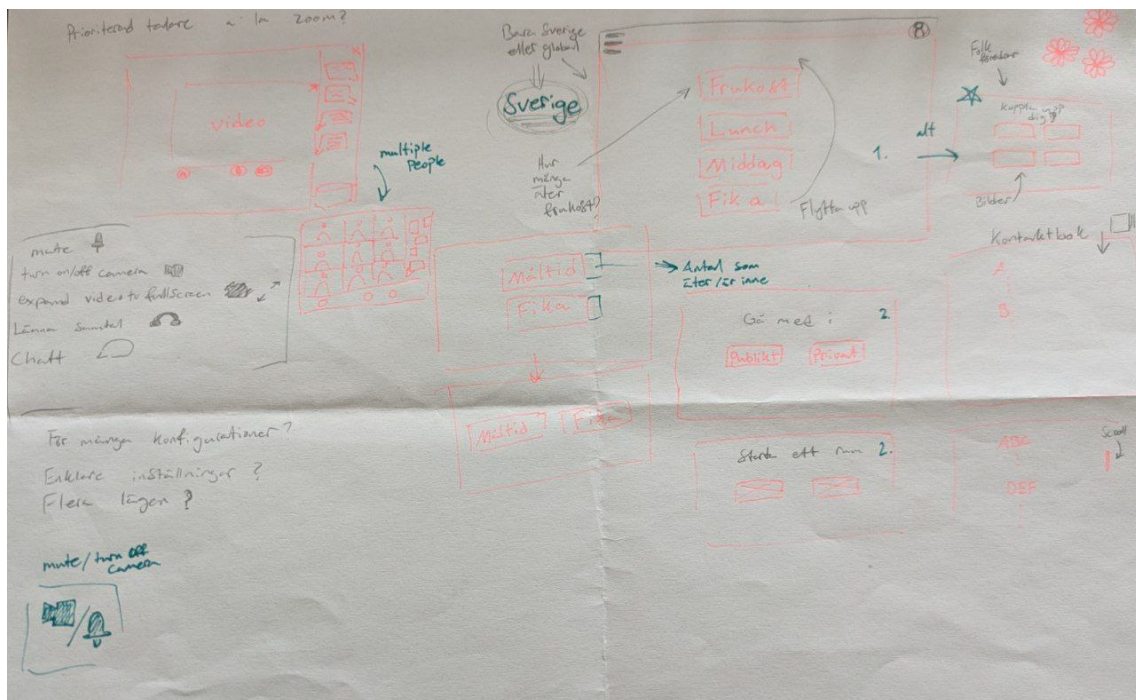 Prioriterad talare a la Zoom?
video
multiple
People
mute
turn on/off camera
expand video to fullscreen
Lämna samtal
Chatt
För många konfigurationer?
Enklare inställningar?
Flera lägen?
mute/turn off
camera
Bara Sverige
eller global
Sverige
Hur
många
äter
frukost?
Frukost
Lunch
Middag
Fika
Flytta upp
Måltid
Fika
Antal som
äter/är inne
Måltid
Fika
1.
alt
Folk
Koppla upp
dig
Bilder
Gå med i
2.
Publikt
Privat
Starta ett rum 2.
Kontaktbok
A
B
ABC
DEF
Scroll